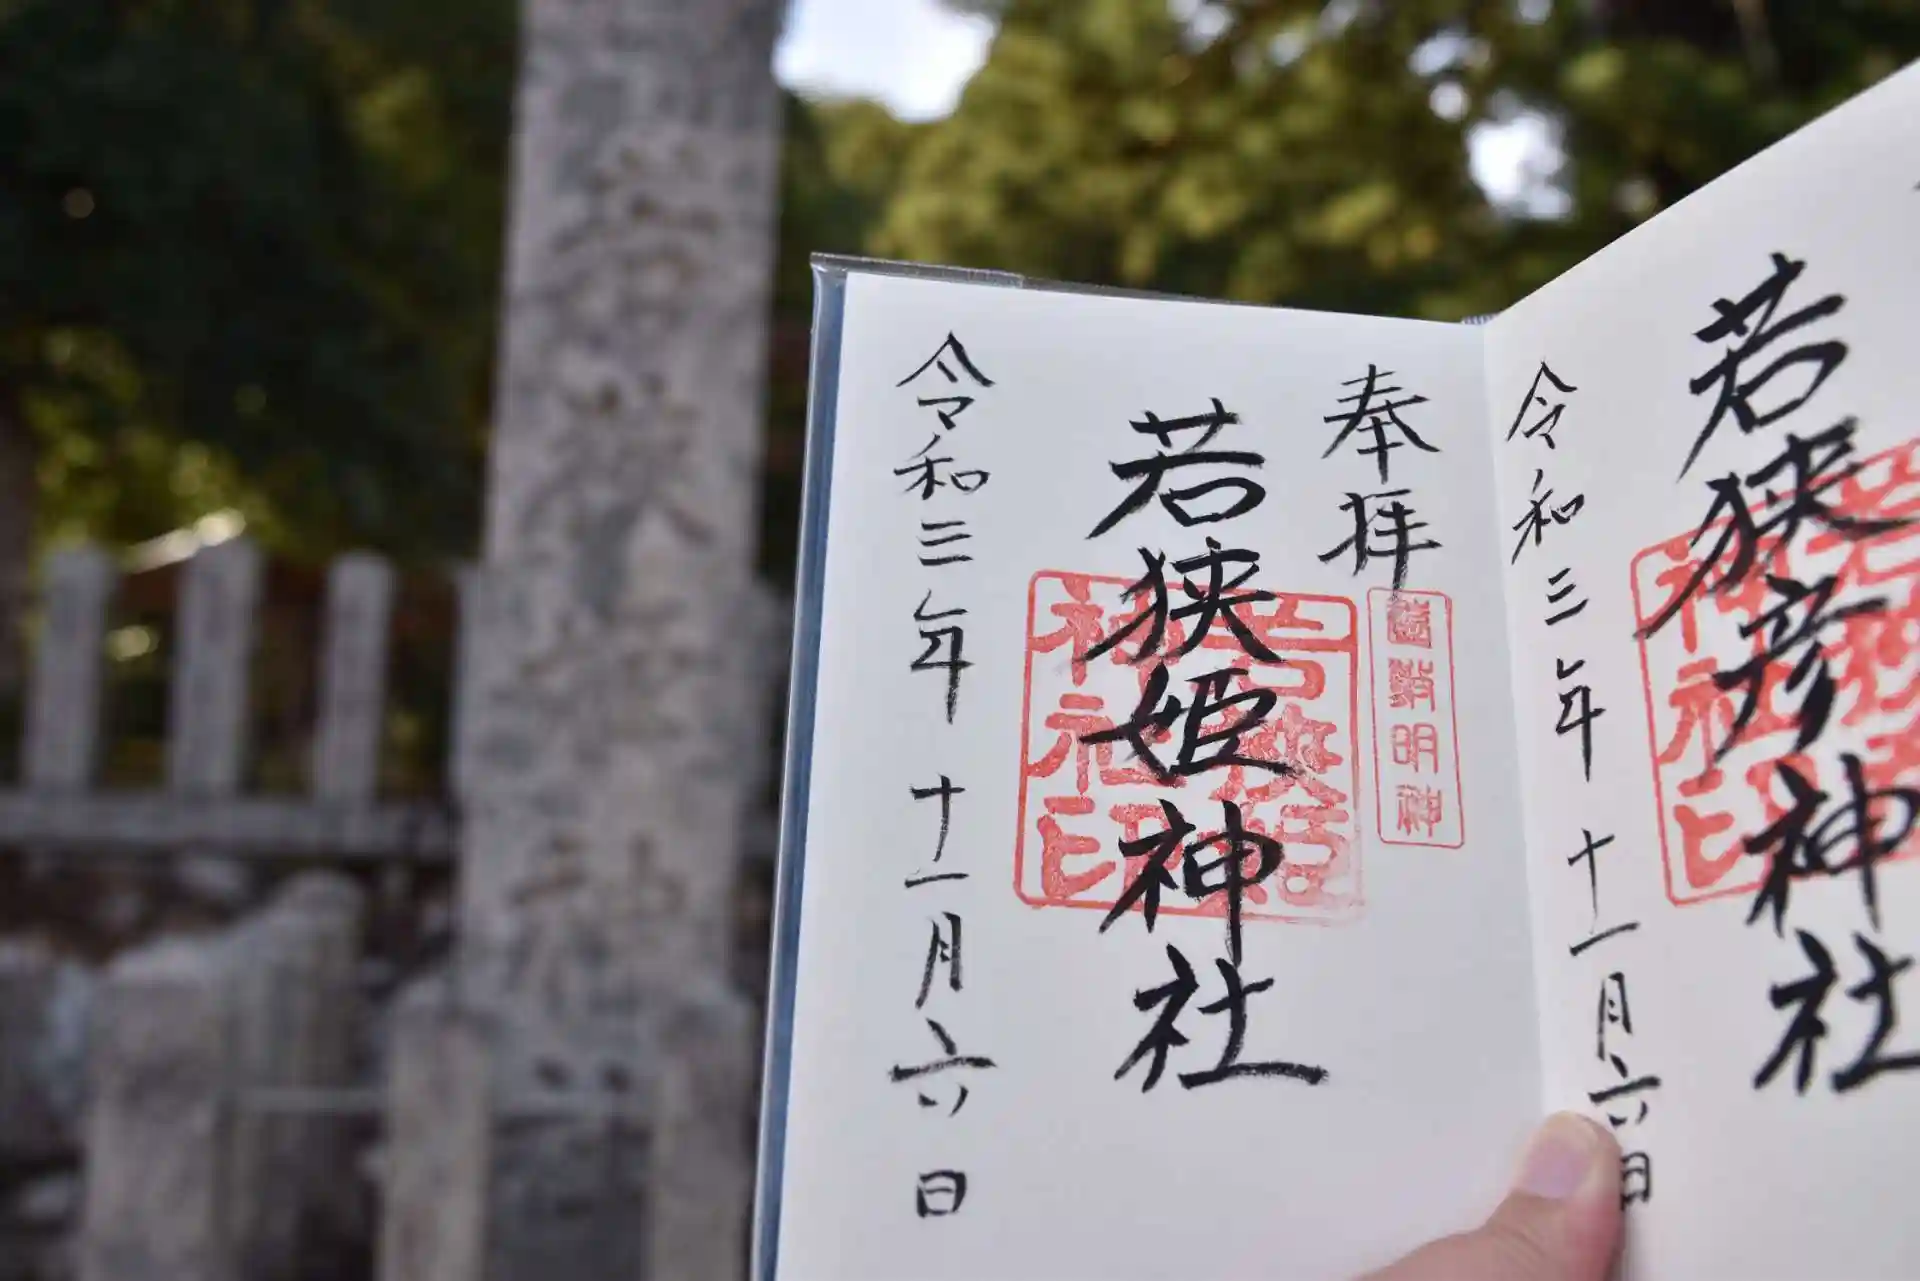 若狭彦神社
令和三年十一月六日
奉拝
若狭姫神社
令和三年十一月六日
若狭姫
神社印
明神
神社
若狭姫神社